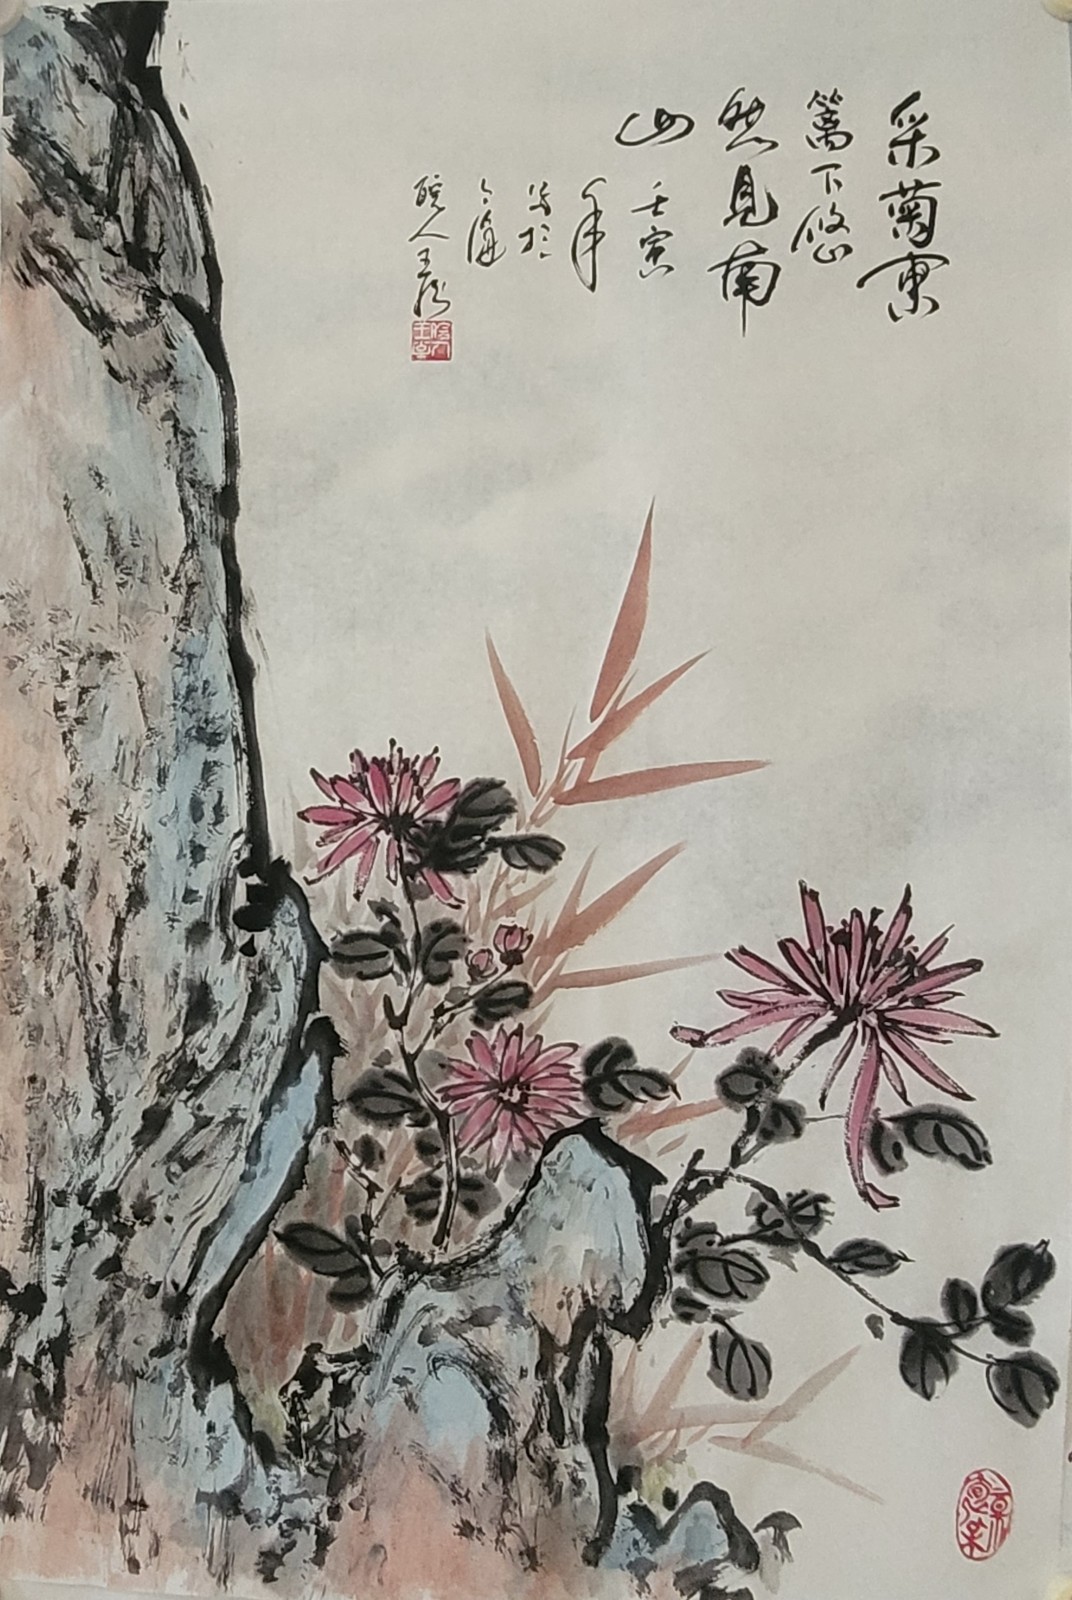 采菊東
篱下悠
然見南
山 壬寅
年
写於
上海
皖人王